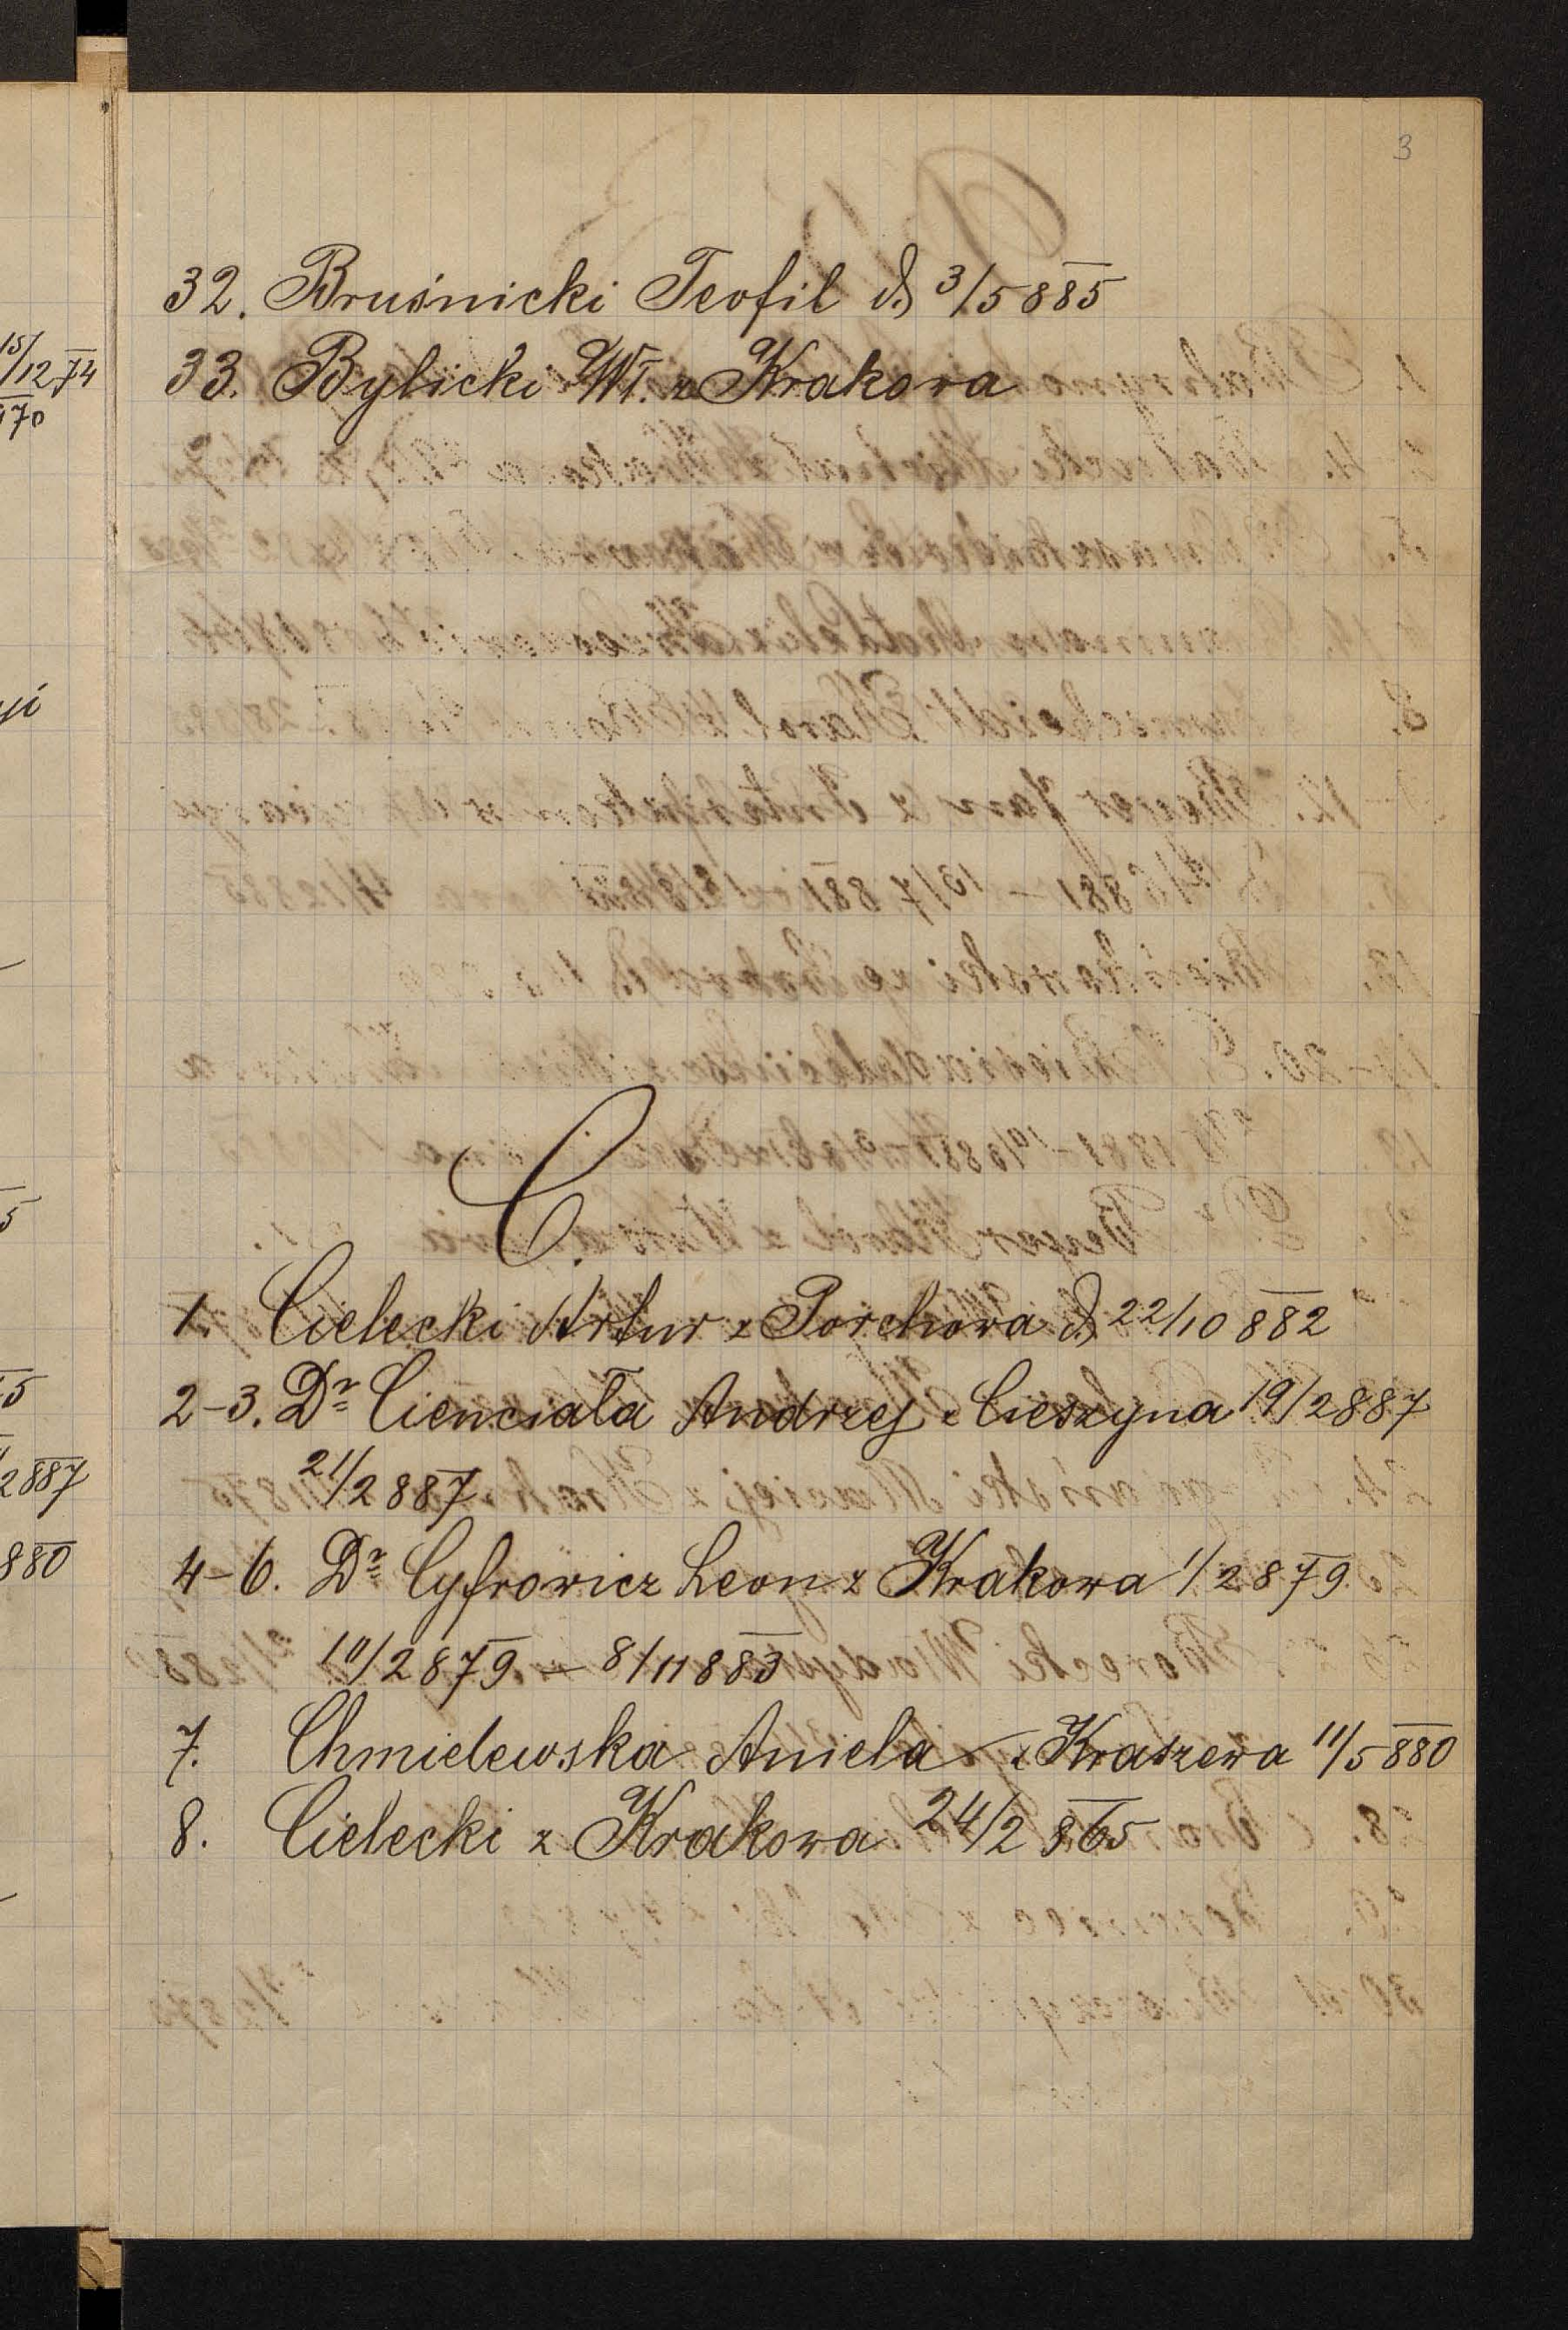 3
32. Bruśnicki Teofil d) 3/5 885
33. Bylicki Wł. z Krakowa
C.
1. Cielecki Artur z Porchowa d) 22/10 882
2-3. Dr Cienciała Andrzej z Cieszyna 19/2 887
21/2 887
4-6. Dr Cyfrowicz Leon z Krakowa 1/2 879
10/2 879 — 8/11 883
7. Chmielewska Aniela z Kraszewa 11/5 880
8. Cielecki z Krakowa 24/2 865